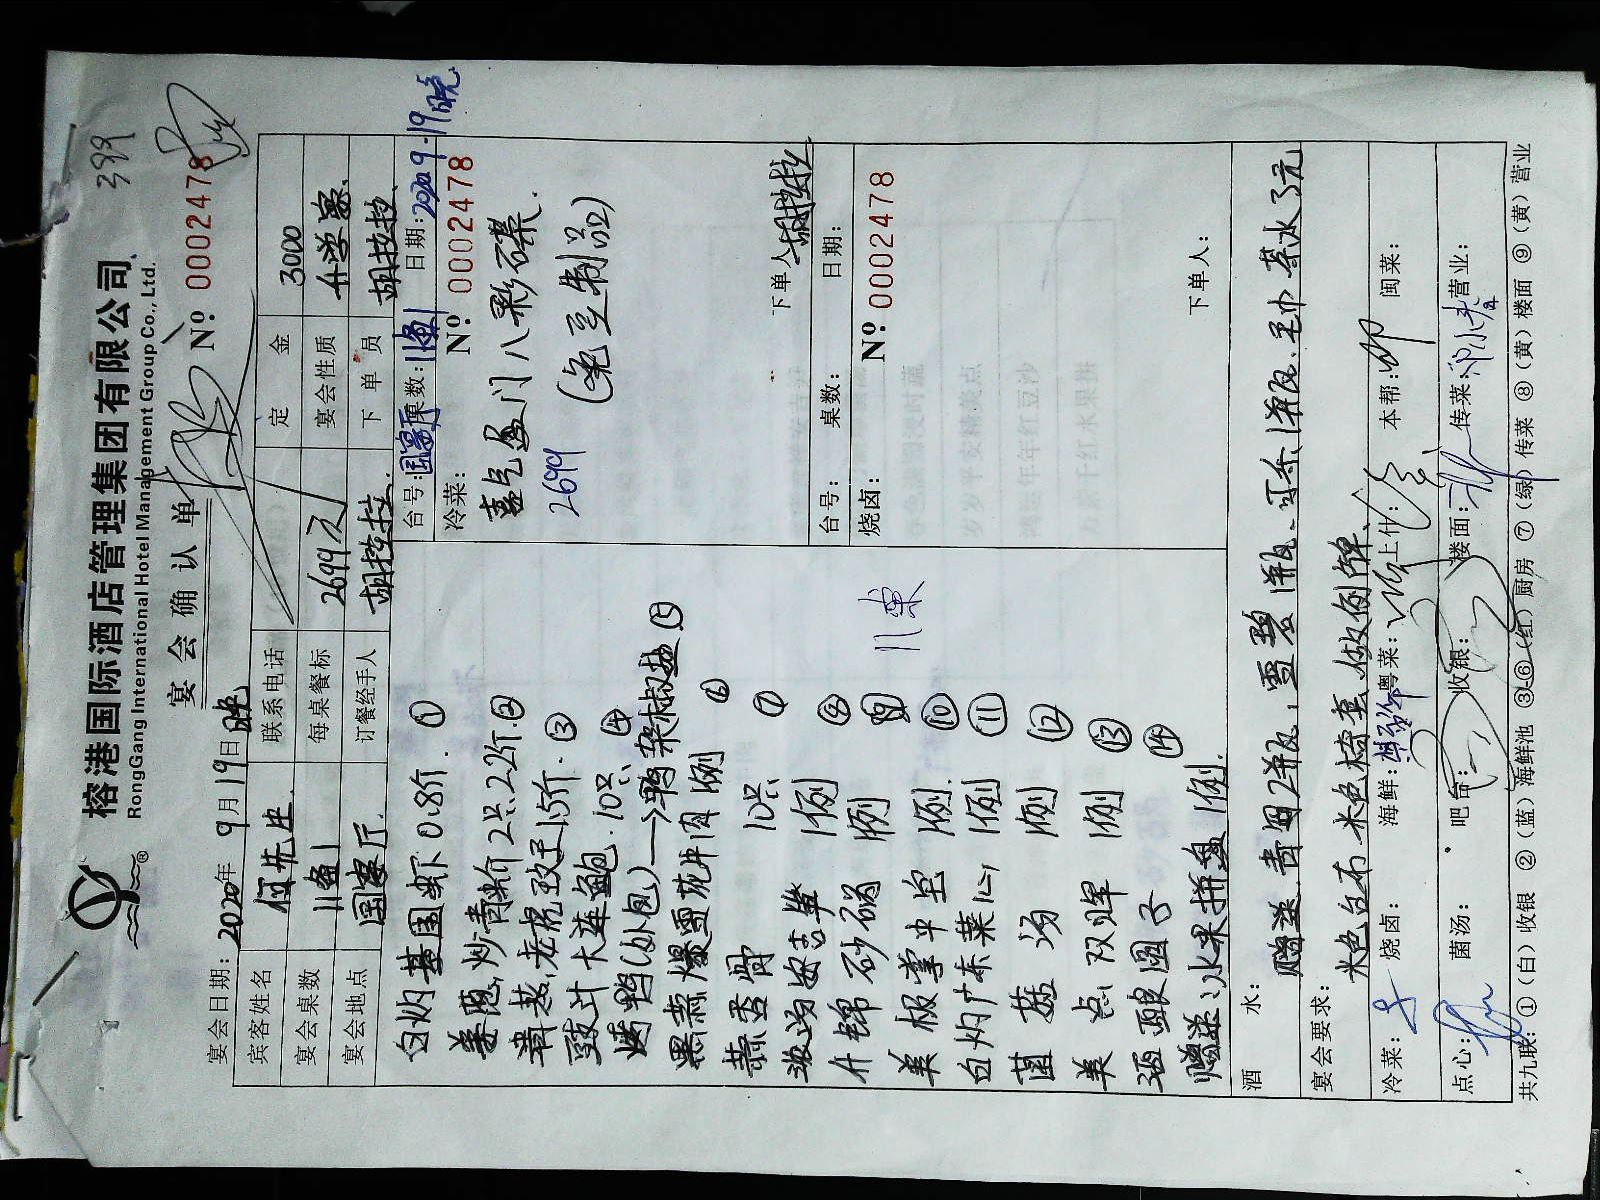 榕港国际酒店管理集团有限公司
RongGang International Hotel Management Group Co., Ltd.
399
宴会确认单
Nº 0002478
宴会日期：2020年9月19日晚
宾客姓名 何先生 联系电话 定金 3000
宴会桌数 11桌 每桌餐标 2699元 宴会性质 升学宴
宴会地点 国宴厅 订餐经手人 胡拉拉 下单员 胡拉拉
白灼基围虾 0.8斤 ①
姜葱炒青蟹 2只 2.2斤 ②
清蒸老虎斑 1.5斤 ③
豉汁大连鲍 10只 ④
烤鸭(外包)→鸭架椒盐 ⑤
黑蒜爆雪花牛肉 1例 ⑥
蒜香骨 10只 ⑦
1例 ⑧
什锦砂锅 1例 ⑨
1例 ⑩
白灼广东菜心 1例 ⑪
菌菇汤 1例 ⑫
美点双辉 1例 ⑬
酒酿圆子 ⑭
赠送：水果拼盘 1例
11桌
台号：国宴厅 桌数：11桌 日期：2020 9-19晚
冷菜： Nº 0002478
喜气盈门八彩碟
(免豆制品)
2699
下单人：胡拉拉
台号： 桌数： 日期：
烧卤： Nº 0002478
下单人：
酒水：赠送 2瓶，雪碧1瓶、1瓶、毛巾茶水3元
宴会要求：米色台布米色椅套
冷菜： 烧卤： 海鲜： 粤菜： 上什： 本帮： 闽菜：
点心： 菌汤： 吧台： 收银： 楼面： 传菜： 营业：
共九联：①(白)收银 ②(蓝)海鲜池 ③-⑥(红)厨房 ⑦(绿)传菜 ⑧(黄)楼面 ⑨(黄)营业